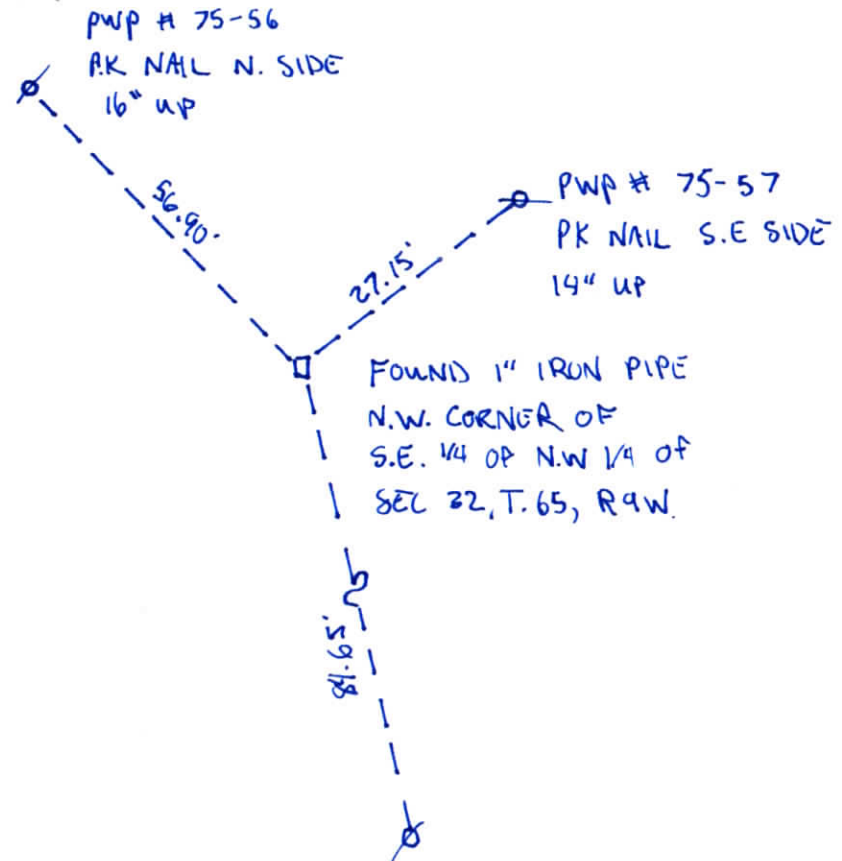 PWP # 75-56
P.K NAIL N. SIDE
16" UP
56.90'
PWP # 75-57
PK NAIL S.E SIDE
14" UP
27.15'
FOUND 1" IRON PIPE
N.W. CORNER OF
S.E. 1/4 OF N.W 1/4 OF
SEC 32, T.6S, R9W.